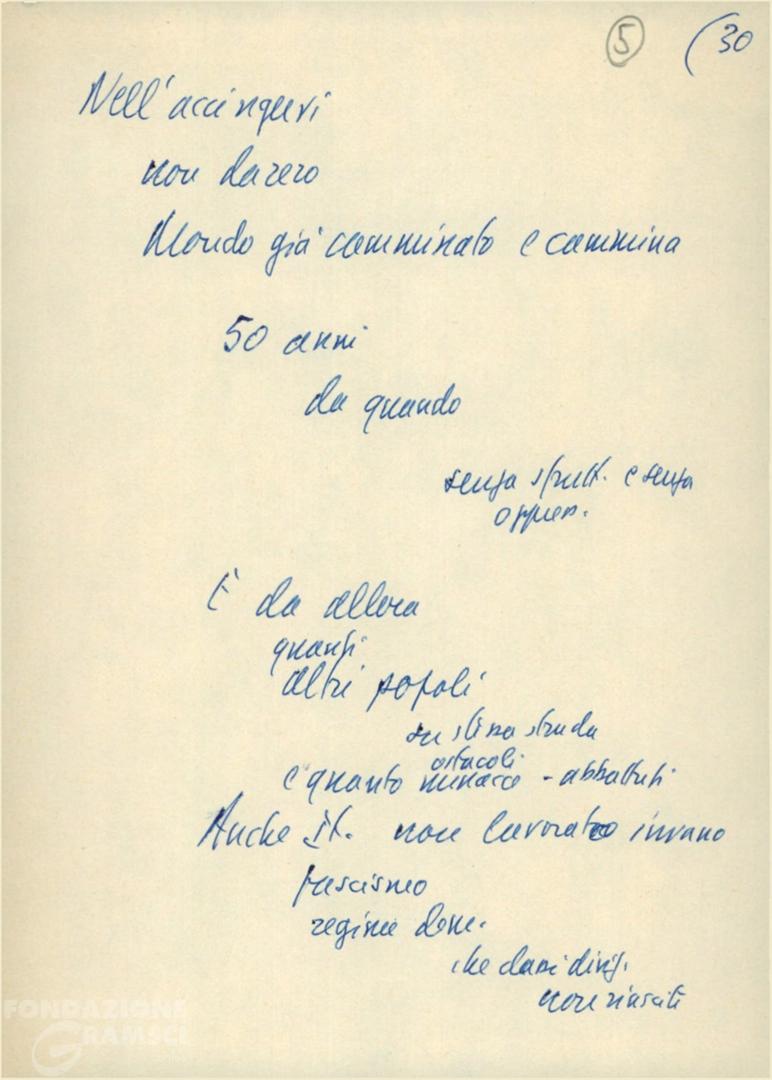 5 (30
Nell'accingervi
non da zero
Mondo già camminato e cammina
50 anni
da quando
senza sfrutt. e senza
oppres.
E da allora
quanti
altri popoli
su stessa strada
ostacoli
e quante minacce - abbattuti
Anche It. non lavorato invano
fascismo
regime dem.
che classi dirig.
non riuscite
FONDAZIONE
GRAMSCI